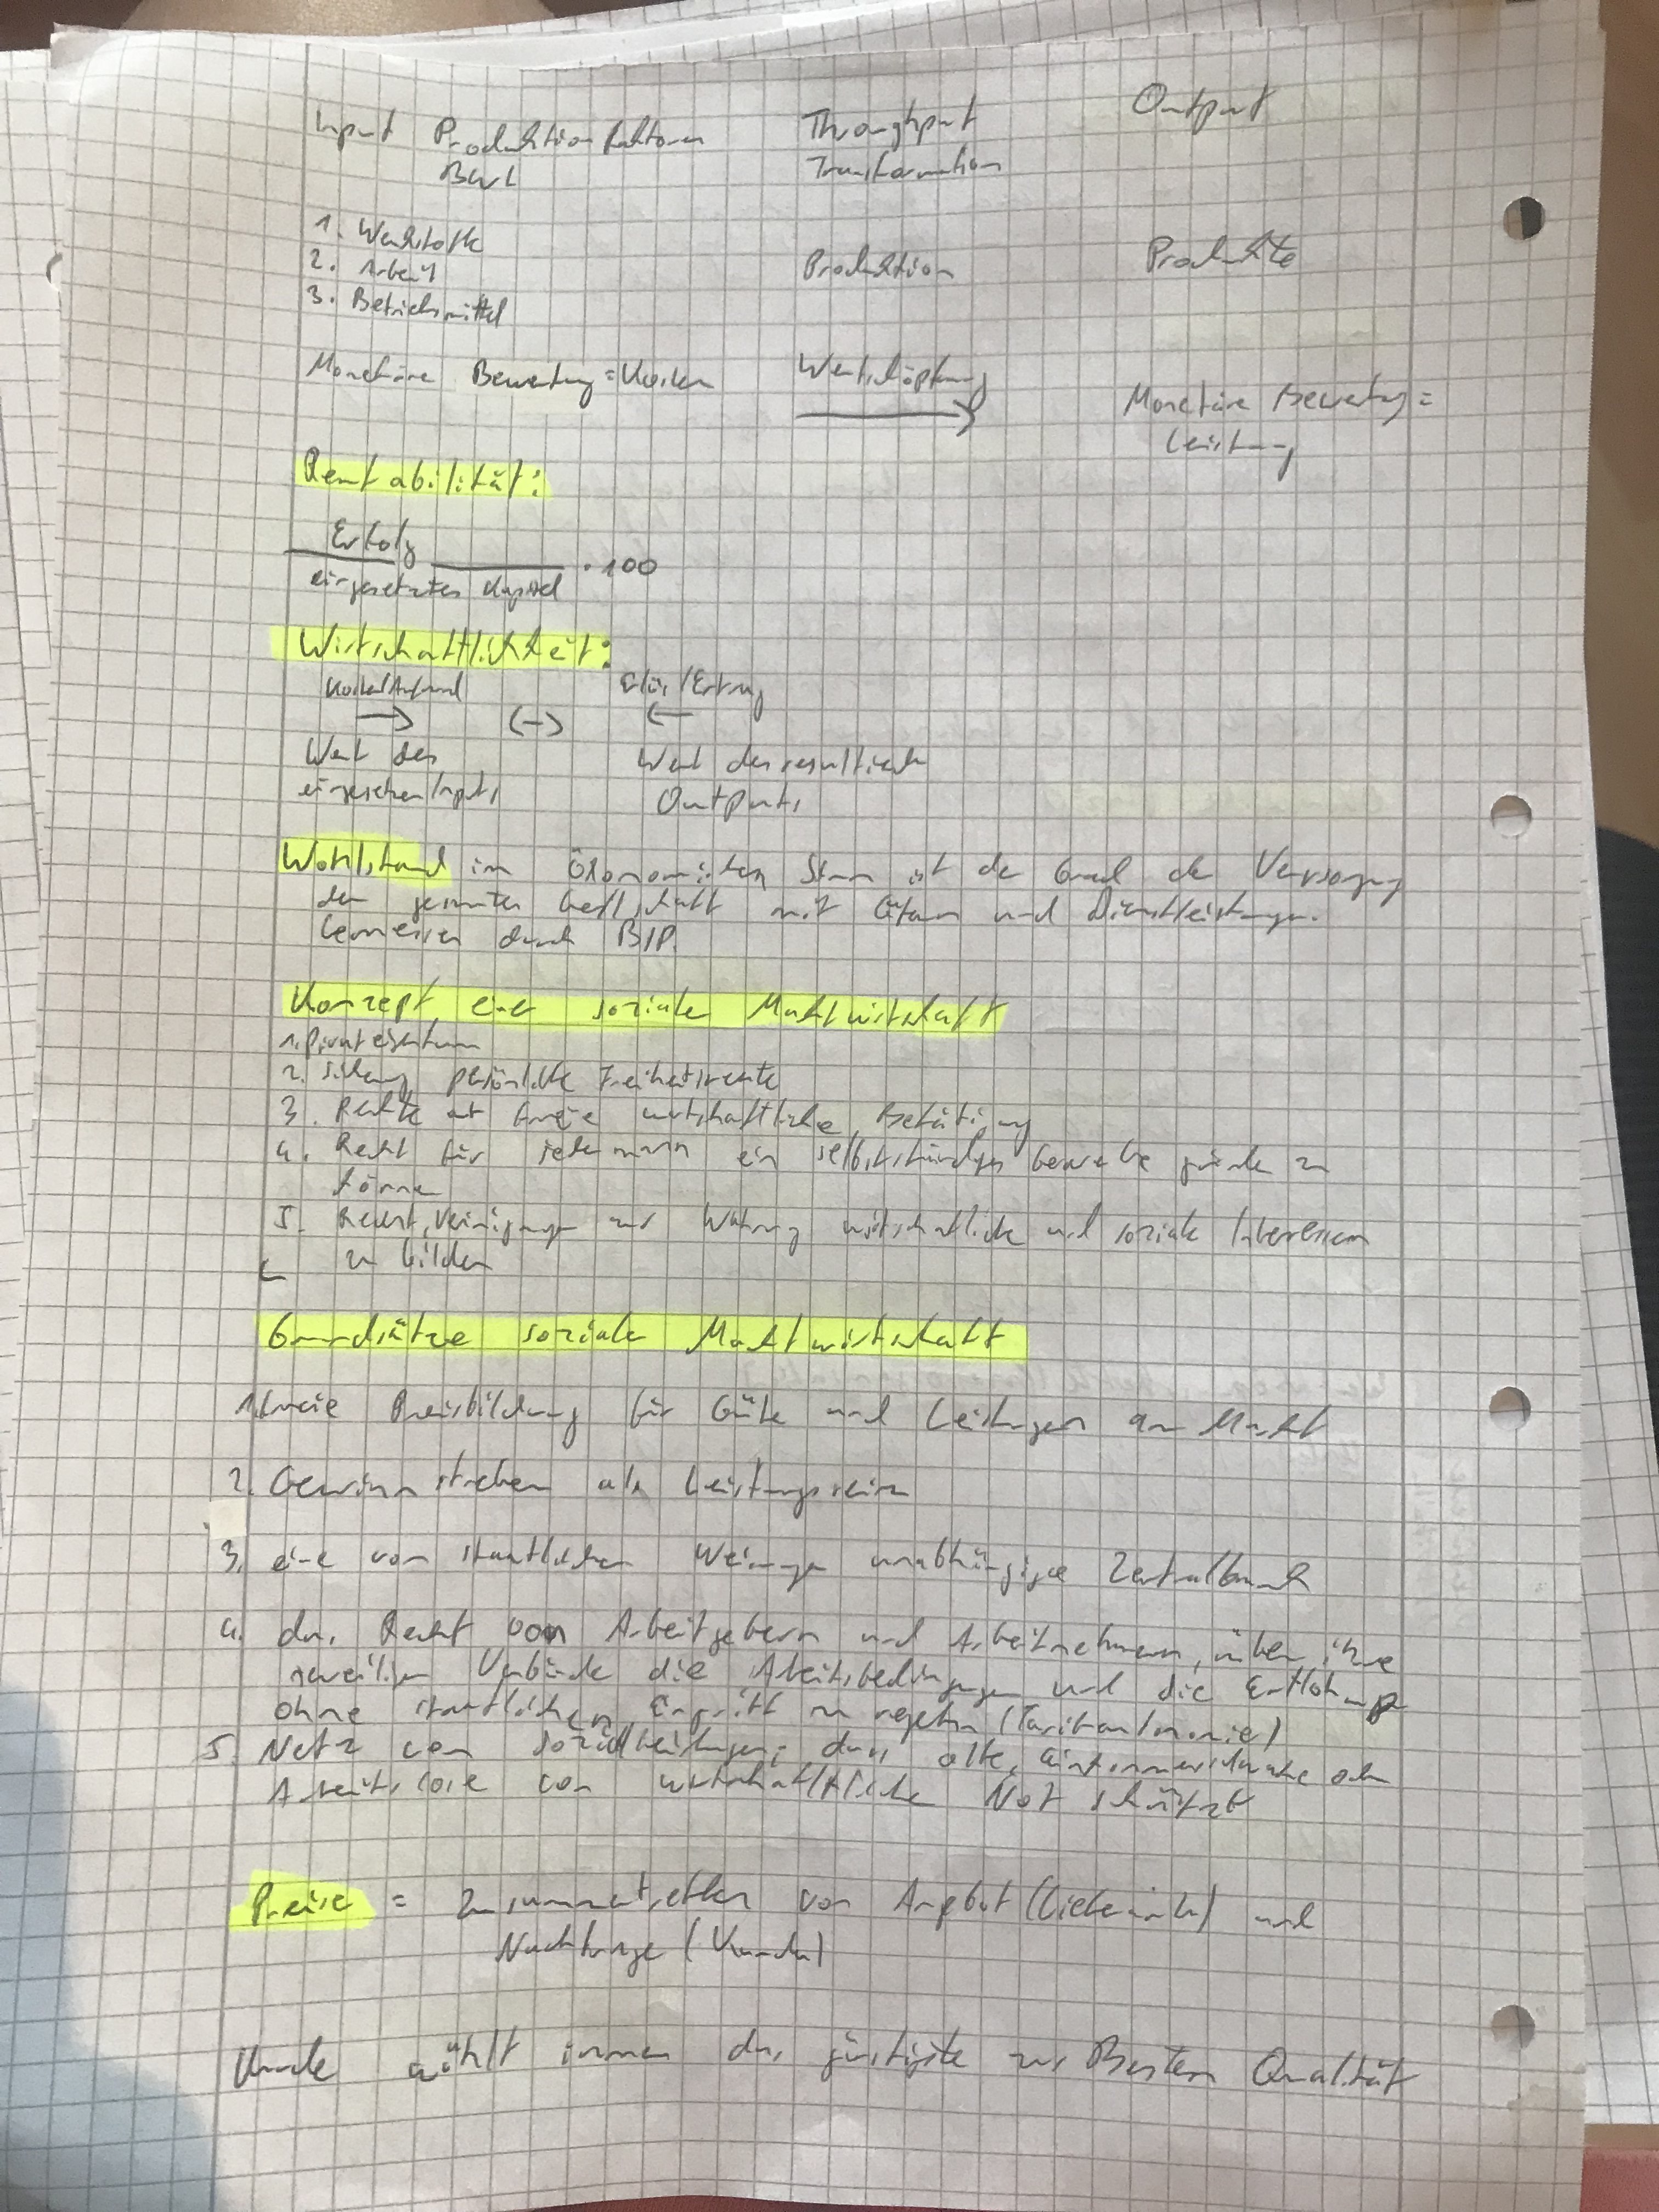 Input Produktionsfaktoren Throughput Output
BWL Transformation
1. Werkstoffe
2. Arbeit Produktion Produkte
3. Betriebsmittel
Monetäre Bewertung = Kosten Wertschöpfung Monetäre Bewertung =
Leistung
Rentabilität:
Erfolg
eingesetztes Kapital · 100
Wirtschaftlichkeit:
Kosten/Aufwand Erlös/Ertrag
Wert des Wert des resultierenden
eingesetzten Inputs Outputs
Wohlstand im ökonomischen Sinn ist der Grad der Versorgung
der gesamten Gesellschaft mit Gütern und Dienstleistungen.
Gemessen durch BIP.
Konzept einer sozialen Marktwirtschaft
1. Privateigentum
2. Sicherung persönliche Freiheitsrechte
3. Rechte auf freie wirtschaftliche Betätigung
4. Recht für jedermann ein selbstständiges Gewerbe gründen zu
können
5. Recht, Vereinigungen zur Wahrung wirtschaftliche und soziale Interessen
zu bilden
Grundsätze soziale Marktwirtschaft
1. freie Preisbildung für Güter und Leistungen am Markt
2. Gewinnstreben als Leistungsreiz
3. eine von staatlichen Weisungen unabhängige Zentralbank
4. das Recht von Arbeitgebern und Arbeitnehmern, über ihre
jeweiligen Verbände die Arbeitsbedingungen und die Entlohnung
ohne staatlichen Eingriff zu regeln (Tarifautonomie)
5. Netz von Sozialleistungen, das alte, einkommensschwache oder
Arbeitslose von wirtschaftliche Not schützt
Preise = Zusammentreffen von Angebot (Lieferanten) und
Nachfrage (Kunden)
Kunde wählt immer das günstigste zur Besten Qualität